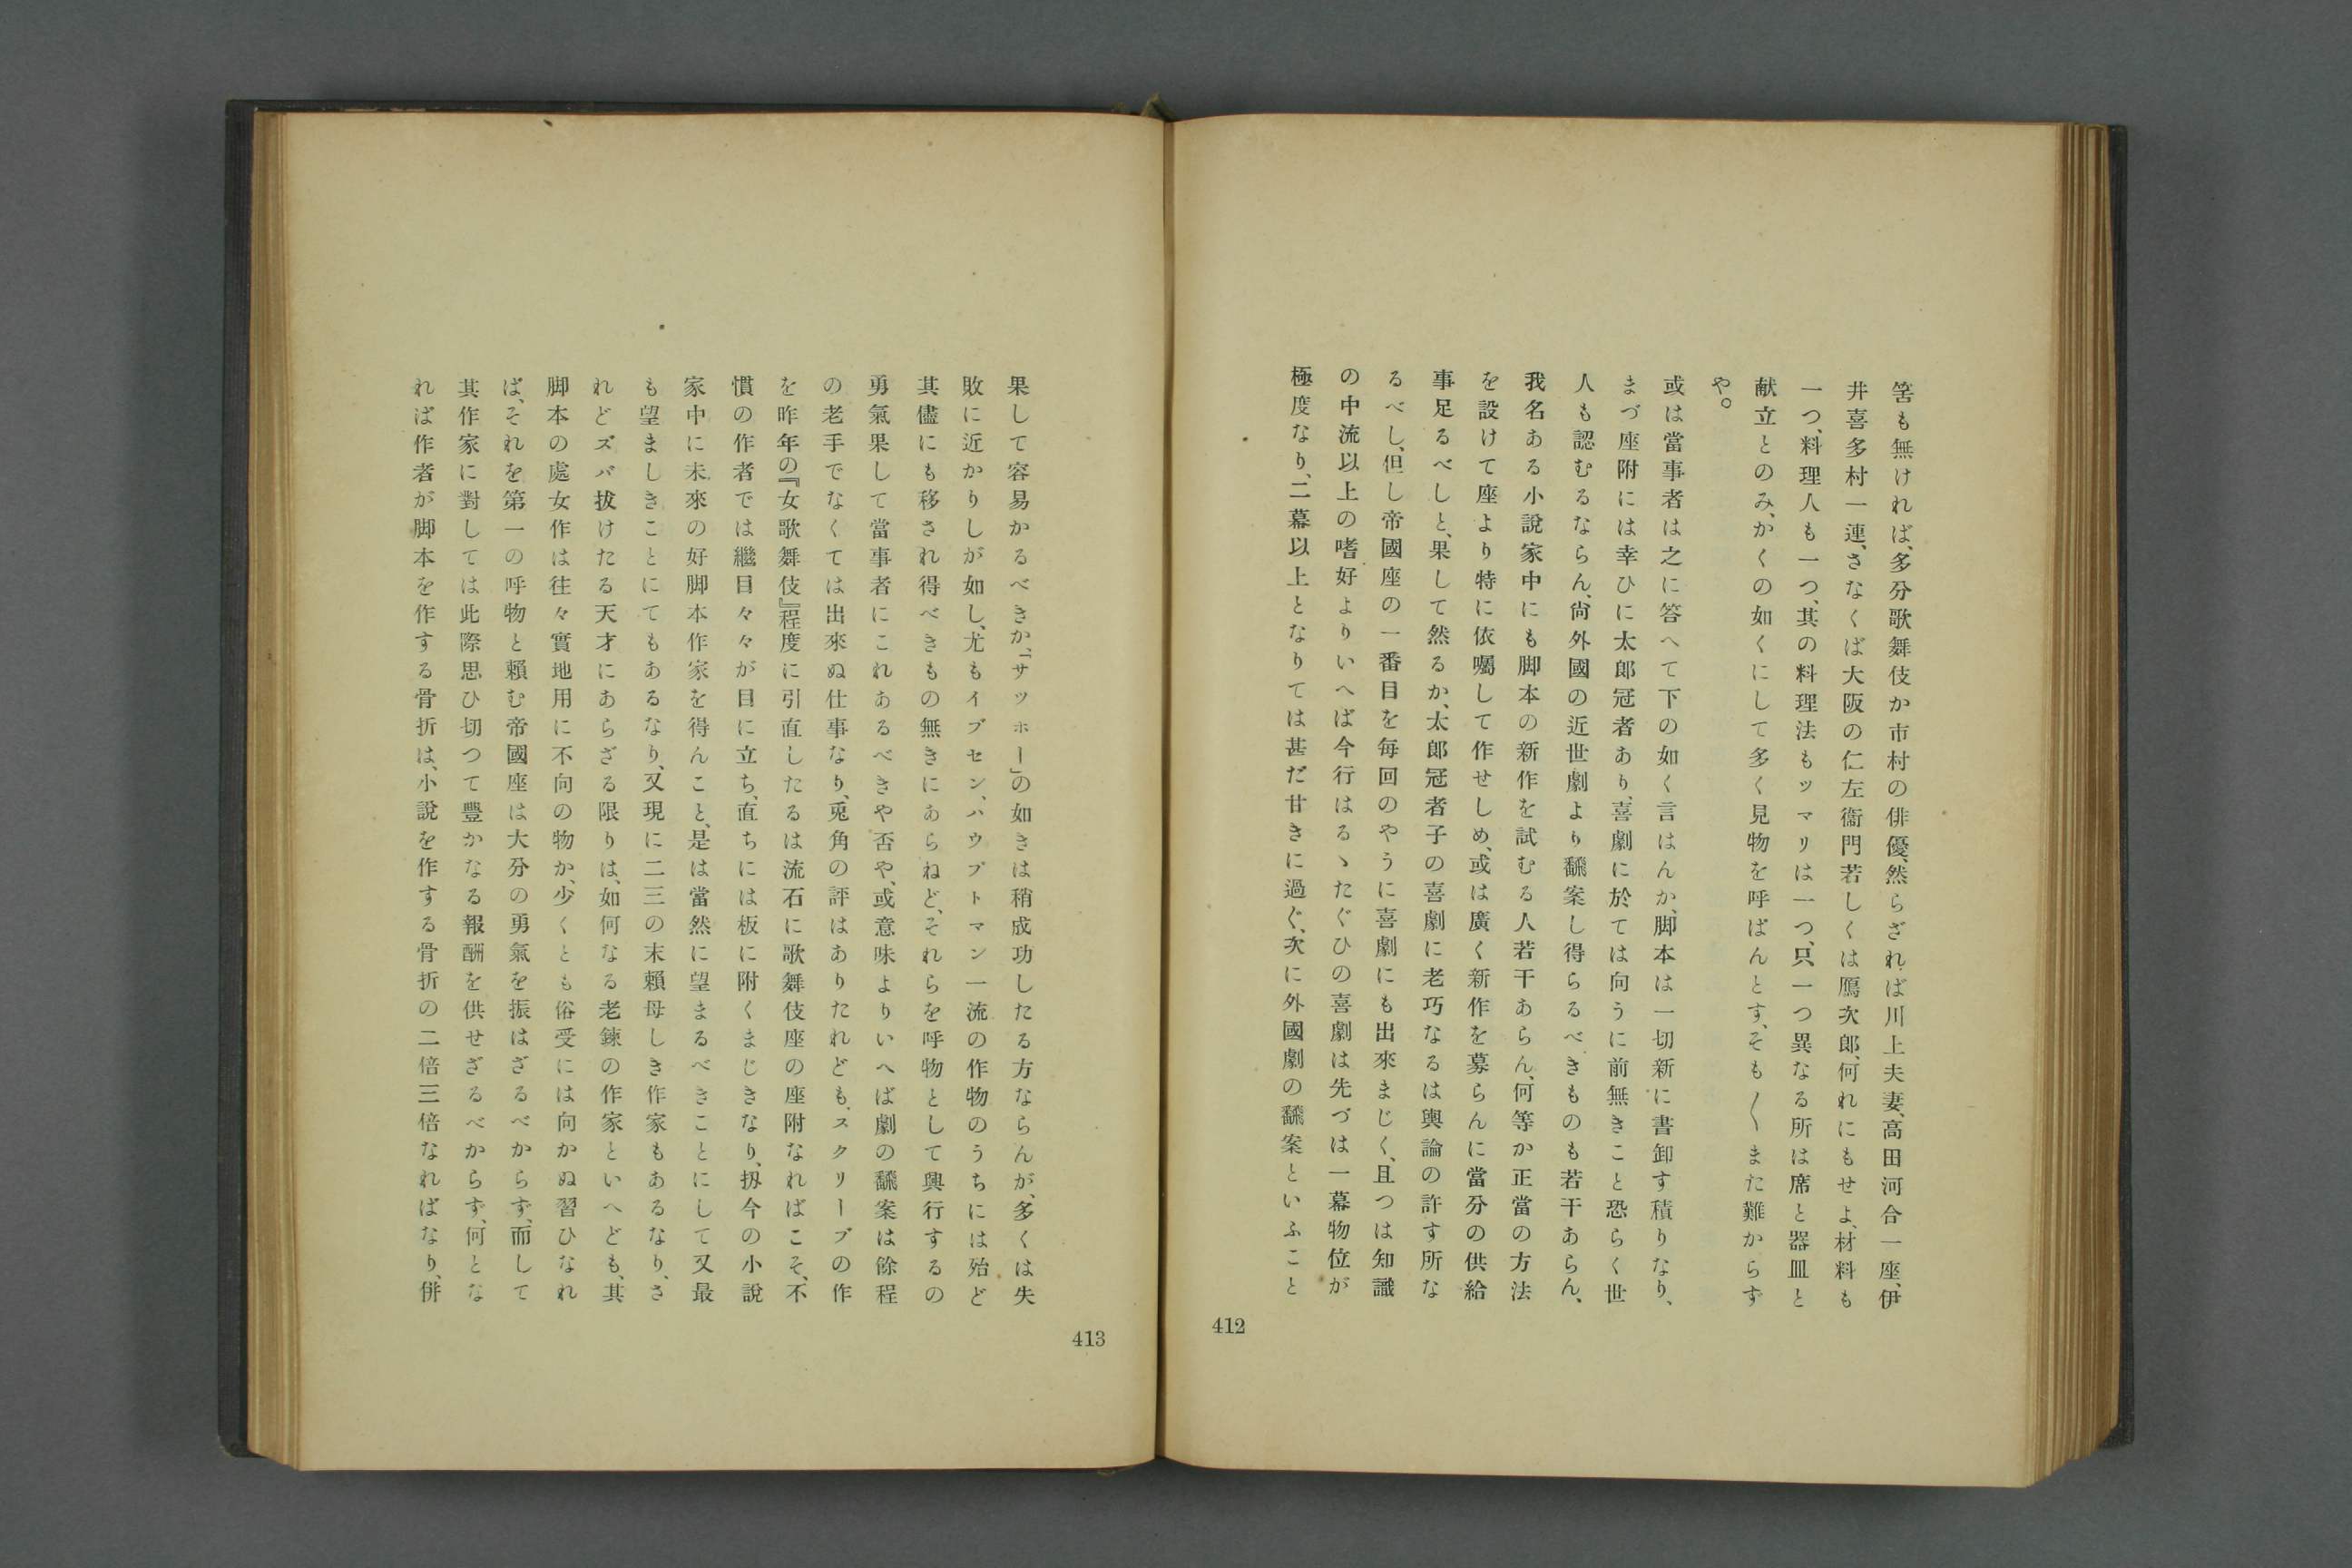 筈も無ければ、多分歌舞伎か市村の俳優、然らざれば川上夫妻、高田河合一座、伊
井喜多村一連、さなくば大阪の仁左衞門若しくは鴈次郎、何れにもせよ、材料も
一つ、料理人も一つ、其の料理法もツマリは一つ、只一つ異なる所は席と器皿と
献立とのみ、かくの如くにして多く見物を呼ばんとす、そも〳〵また難からず
や。
或は當事者は之に答へて下の如く言はんか、脚本は一切新に書卸す積りなり、
まづ座附には幸ひに太郎冠者あり、喜劇に於ては向うに前無きこと恐らく世
人も認むるならん、尙外國の近世劇より飜案し得らるべきものも若干あらん、
我名ある小說家中にも脚本の新作を試むる人若干あらん、何等か正當の方法
を設けて座より特に依囑して作せしめ、或は廣く新作を募らんに當分の供給
事足るべしと、果して然るか、太郎冠者子の喜劇に老巧なるは輿論の許す所な
るべし、但し帝國座の一番目を每回のやうに喜劇にも出來まじく、且つは知識
の中流以上の嗜好よりいへば今行はるゝたぐひの喜劇は先づは一幕物位が
極度なり、二幕以上となりては甚だ甘きに過ぐ、次に外國劇の飜案といふこと
412
果して容易かるべきか、「サッホー」の如きは稍成功したる方ならんが、多くは失
敗に近かりしが如し、尤もイブセン、ハウプトマン一流の作物のうちには殆ど
其儘にも移され得べきもの無きにあらねど、それらを呼物として興行するの
勇氣果して當事者にこれあるべきや否や、或意味よりいへば劇の飜案は餘程
の老手でなくては出來ぬ仕事なり、兎角の評はありたれども、スクリーブの作
を昨年の『女歌舞伎』程度に引直したるは流石に歌舞伎座の座附なればこそ、不
慣の作者では繼目々々が目に立ち、直ちには板に附くまじきなり、扨今の小說
家中に未來の好脚本作家を得んこと、是は當然に望まるべきことにして又最
も望ましきことにてもあるなり、又現に二三の末賴母しき作家もあるなり、さ
れどズバ拔けたる天才にあらざる限りは、如何なる老鍊の作家といへども、其
脚本の處女作は往々實地用に不向の物か、少くとも俗受には向かぬ習ひなれ
ば、それを第一の呼物と賴む帝國座は大分の勇氣を振はざるべからず、而して
其作家に對しては此際思ひ切つて豐かなる報酬を供せざるべからず、何とな
れば作者が脚本を作する骨折は、小說を作する骨折の二倍三倍なればなり、併
413